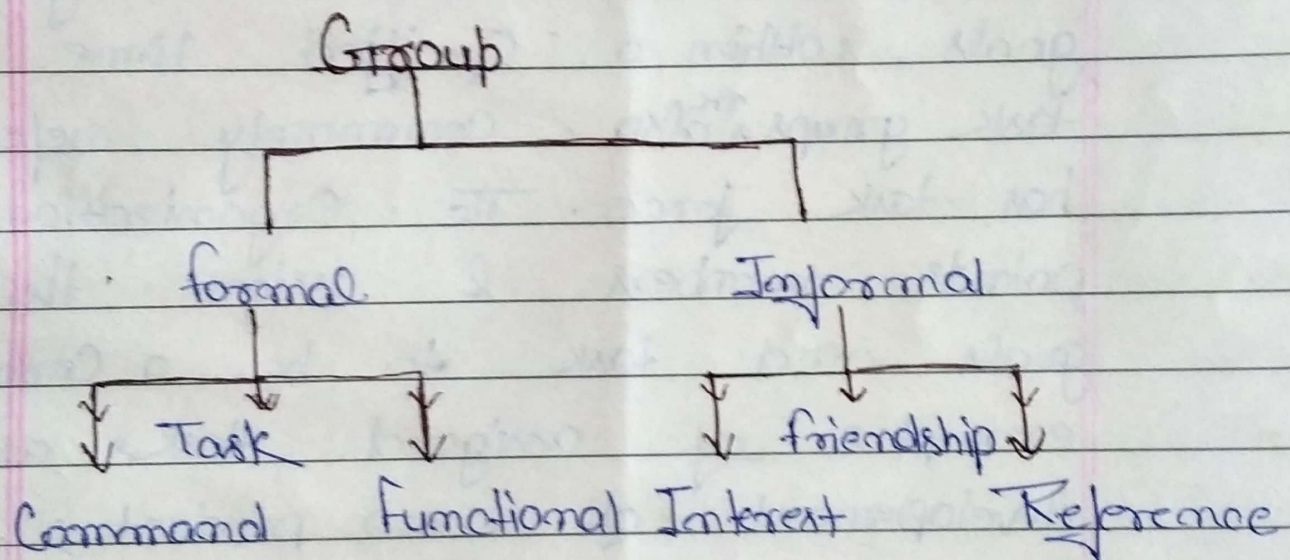 Group
formal Informal
Task friendship
Command Functional Interest Reference